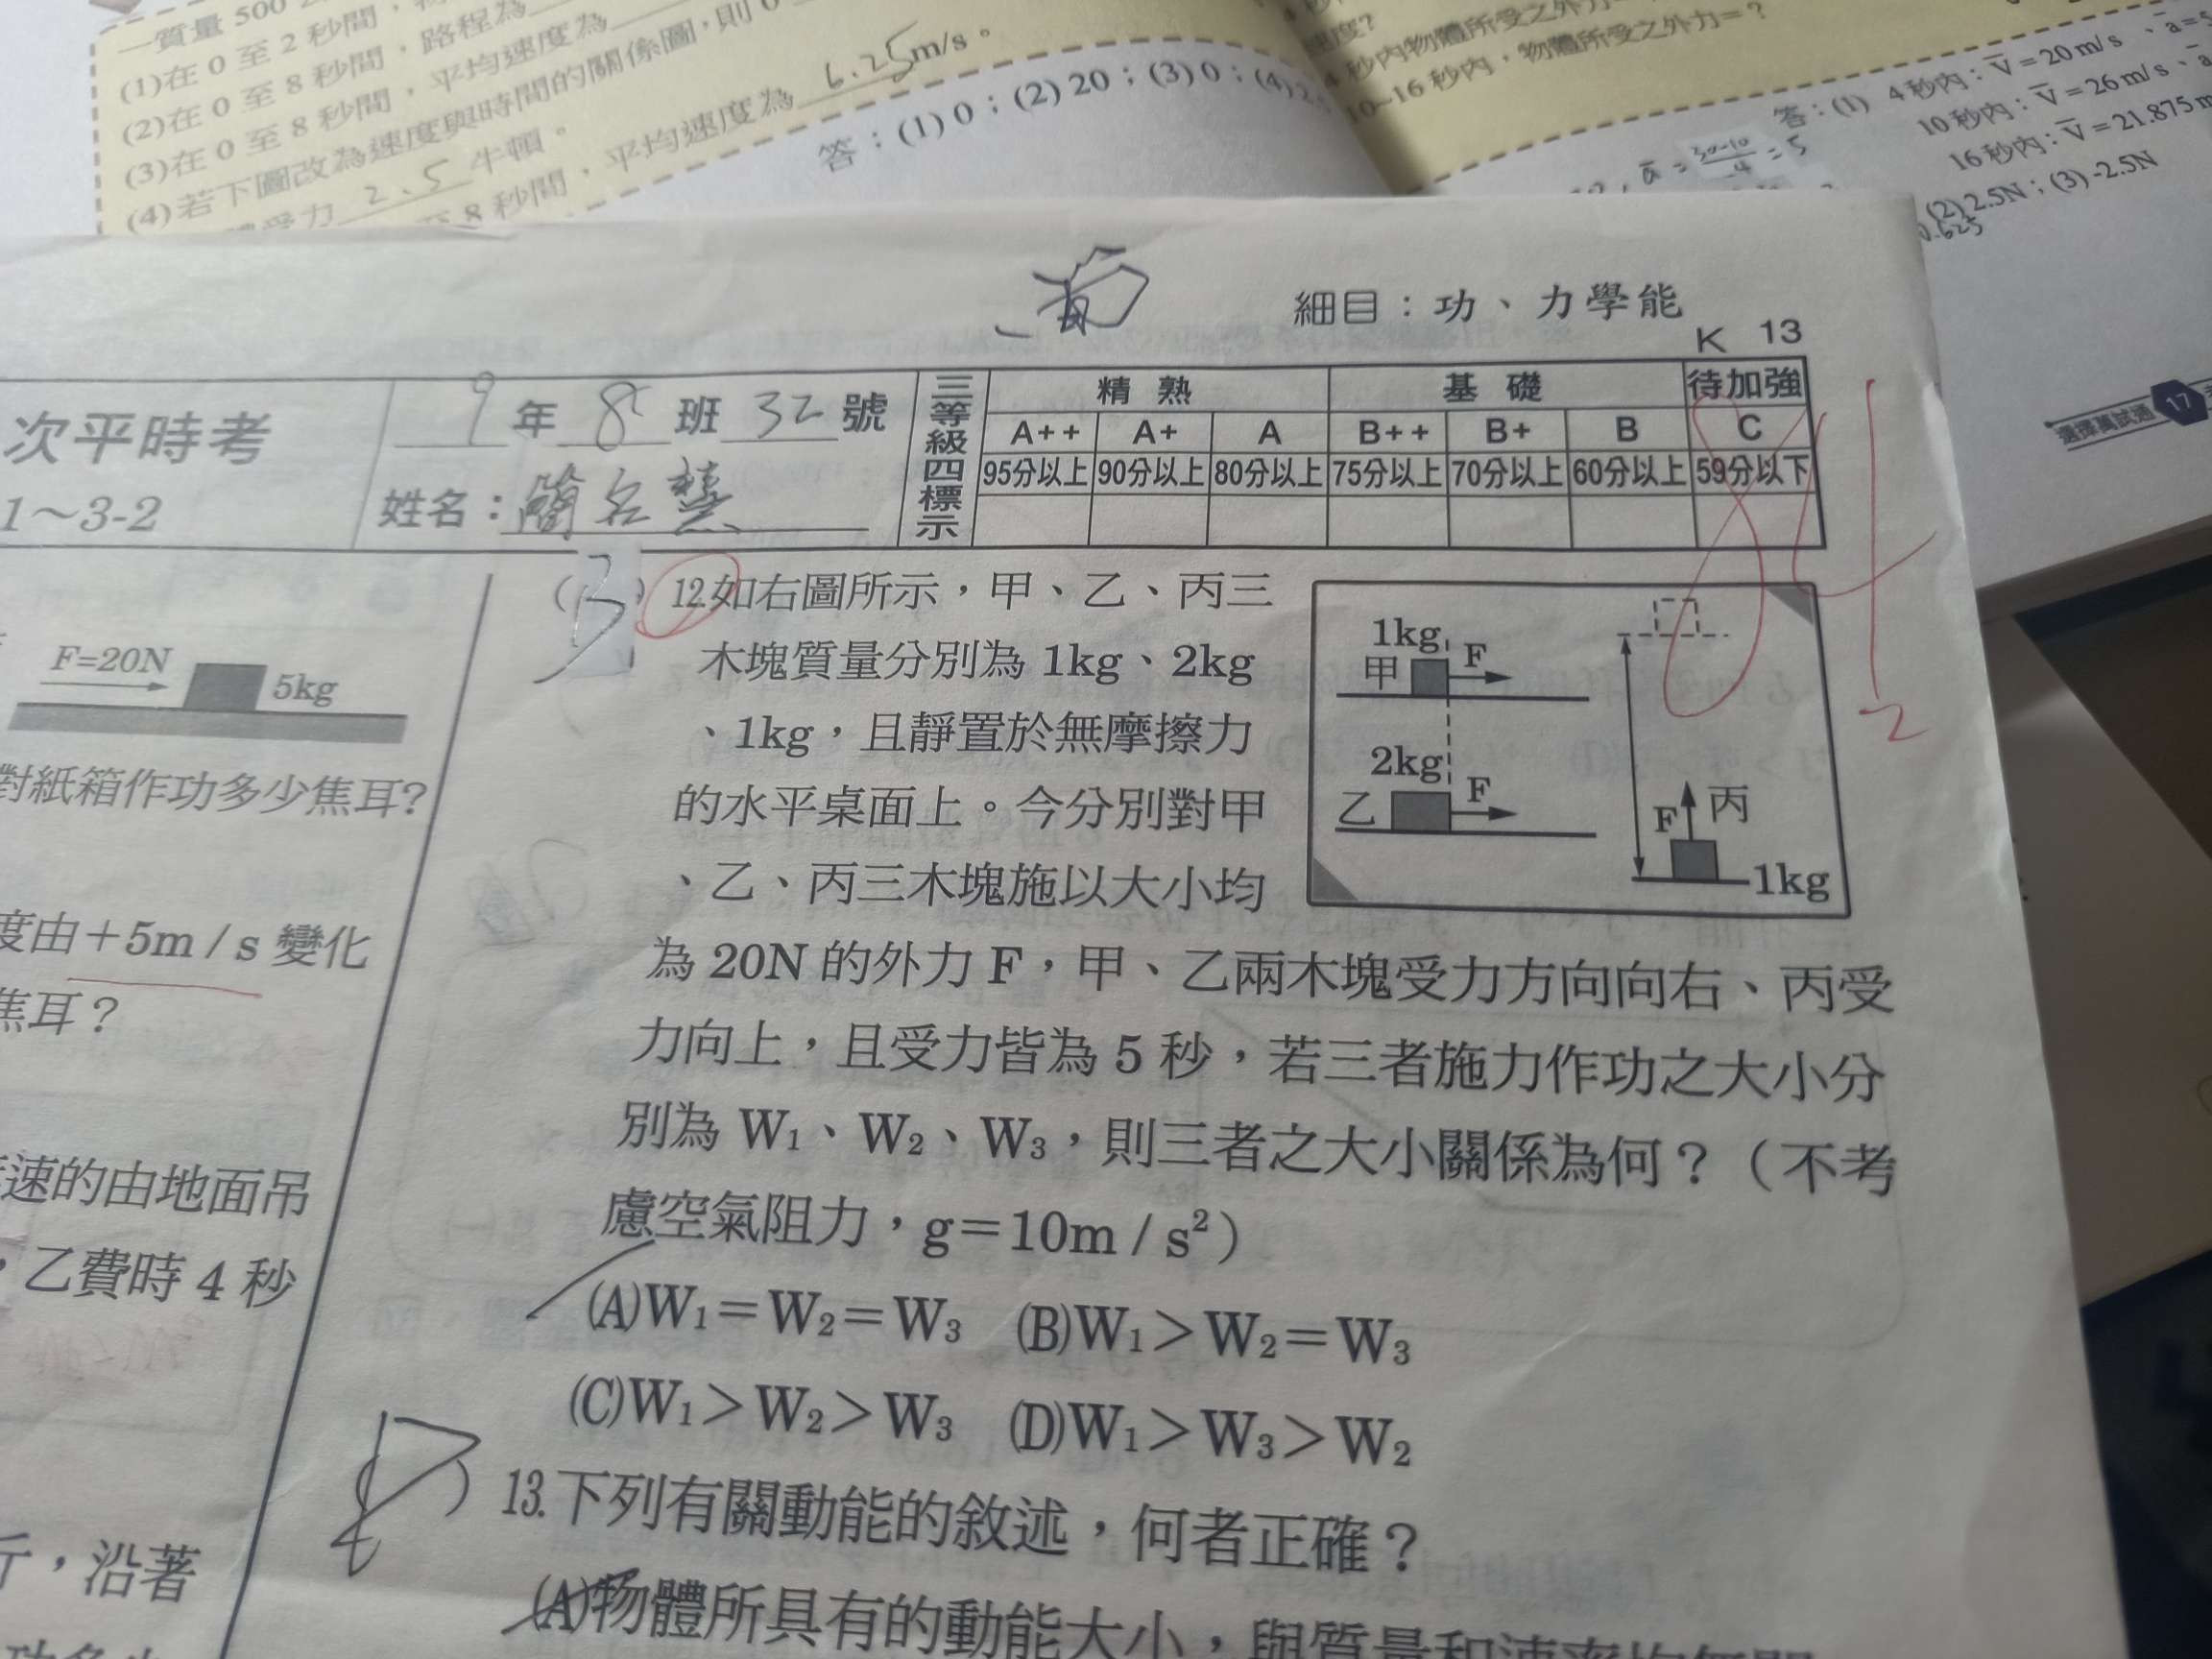 一質量 500
(1)在 0 至 2 秒間,
(2)在 0 至 8 秒間,路程為
(3)在 0 至 8 秒間,平均速度為
(4)若下圖改為速度與時間的關係圖,則 0
受力 2.5 牛頓。
至 8 秒間,平均速度為 6.25 m/s。
答:(1) 0;(2) 20;(3) 0;(4) 2.
速度?
4 秒內物體所受之外力=
10~16 秒內,物體所受之外力=?
答:(1) 4 秒內:V̅=20 m/s、a̅=
10 秒內:V̅=26 m/s、a̅
16 秒內:V̅=21.875 m
(2) 2.5N;(3) -2.5N
a̅ = 30-10/4 = 5
0.625
選擇萬試通 17
細目:功、力學能
K 13
次平時考
1~3-2
9 年 8 班 32 號
姓名:簡名慧
三等級四標示
精熟 基礎 待加強
A++ A+ A B++ B+ B C
95分以上 90分以上 80分以上 75分以上 70分以上 60分以上 59分以下
84
2
F=20N
5kg
對紙箱作功多少焦耳?
度由+5m/s 變化
焦耳?
速的由地面吊
,乙費時 4 秒
,沿著
(B) 12.如右圖所示,甲、乙、丙三
木塊質量分別為 1kg、2kg
、1kg,且靜置於無摩擦力
的水平桌面上。今分別對甲
、乙、丙三木塊施以大小均
為 20N 的外力 F,甲、乙兩木塊受力方向向右、丙受
力向上,且受力皆為 5 秒,若三者施力作功之大小分
別為 W₁、W₂、W₃,則三者之大小關係為何?(不考
慮空氣阻力,g=10m/s²)
(A)W₁=W₂=W₃ (B)W₁>W₂=W₃
(C)W₁>W₂>W₃ (D)W₁>W₃>W₂
1kg
甲 F
2kg
乙 F
F 丙
1kg
( ) 13.下列有關動能的敘述,何者正確?
(A)物體所具有的動能大小,與質量和速率均無關